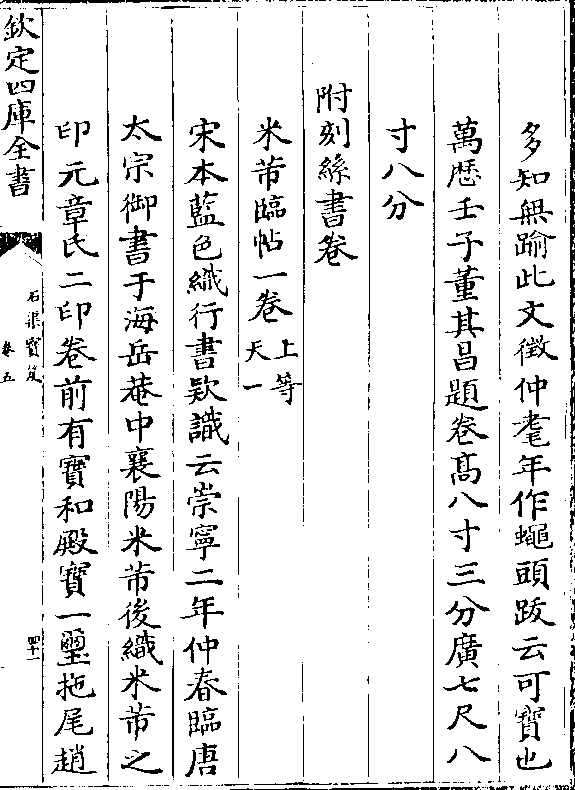 多知無踰此文徴仲耄年作蠅頭跋云可寳也
萬厯壬子董其昌題卷髙八寸三分廣七尺八
寸八分
附刻絲書卷
米芾臨帖一卷上等天一
宋本藍色織行書欵識云崇寧二年仲春臨唐
太宗御書于海岳菴中襄陽米芾後織米芾之
印元章氏二印卷前有寳和殿寳一璽拖尾趙
欽定四庫全書
石渠寳笈
卷五
四十一